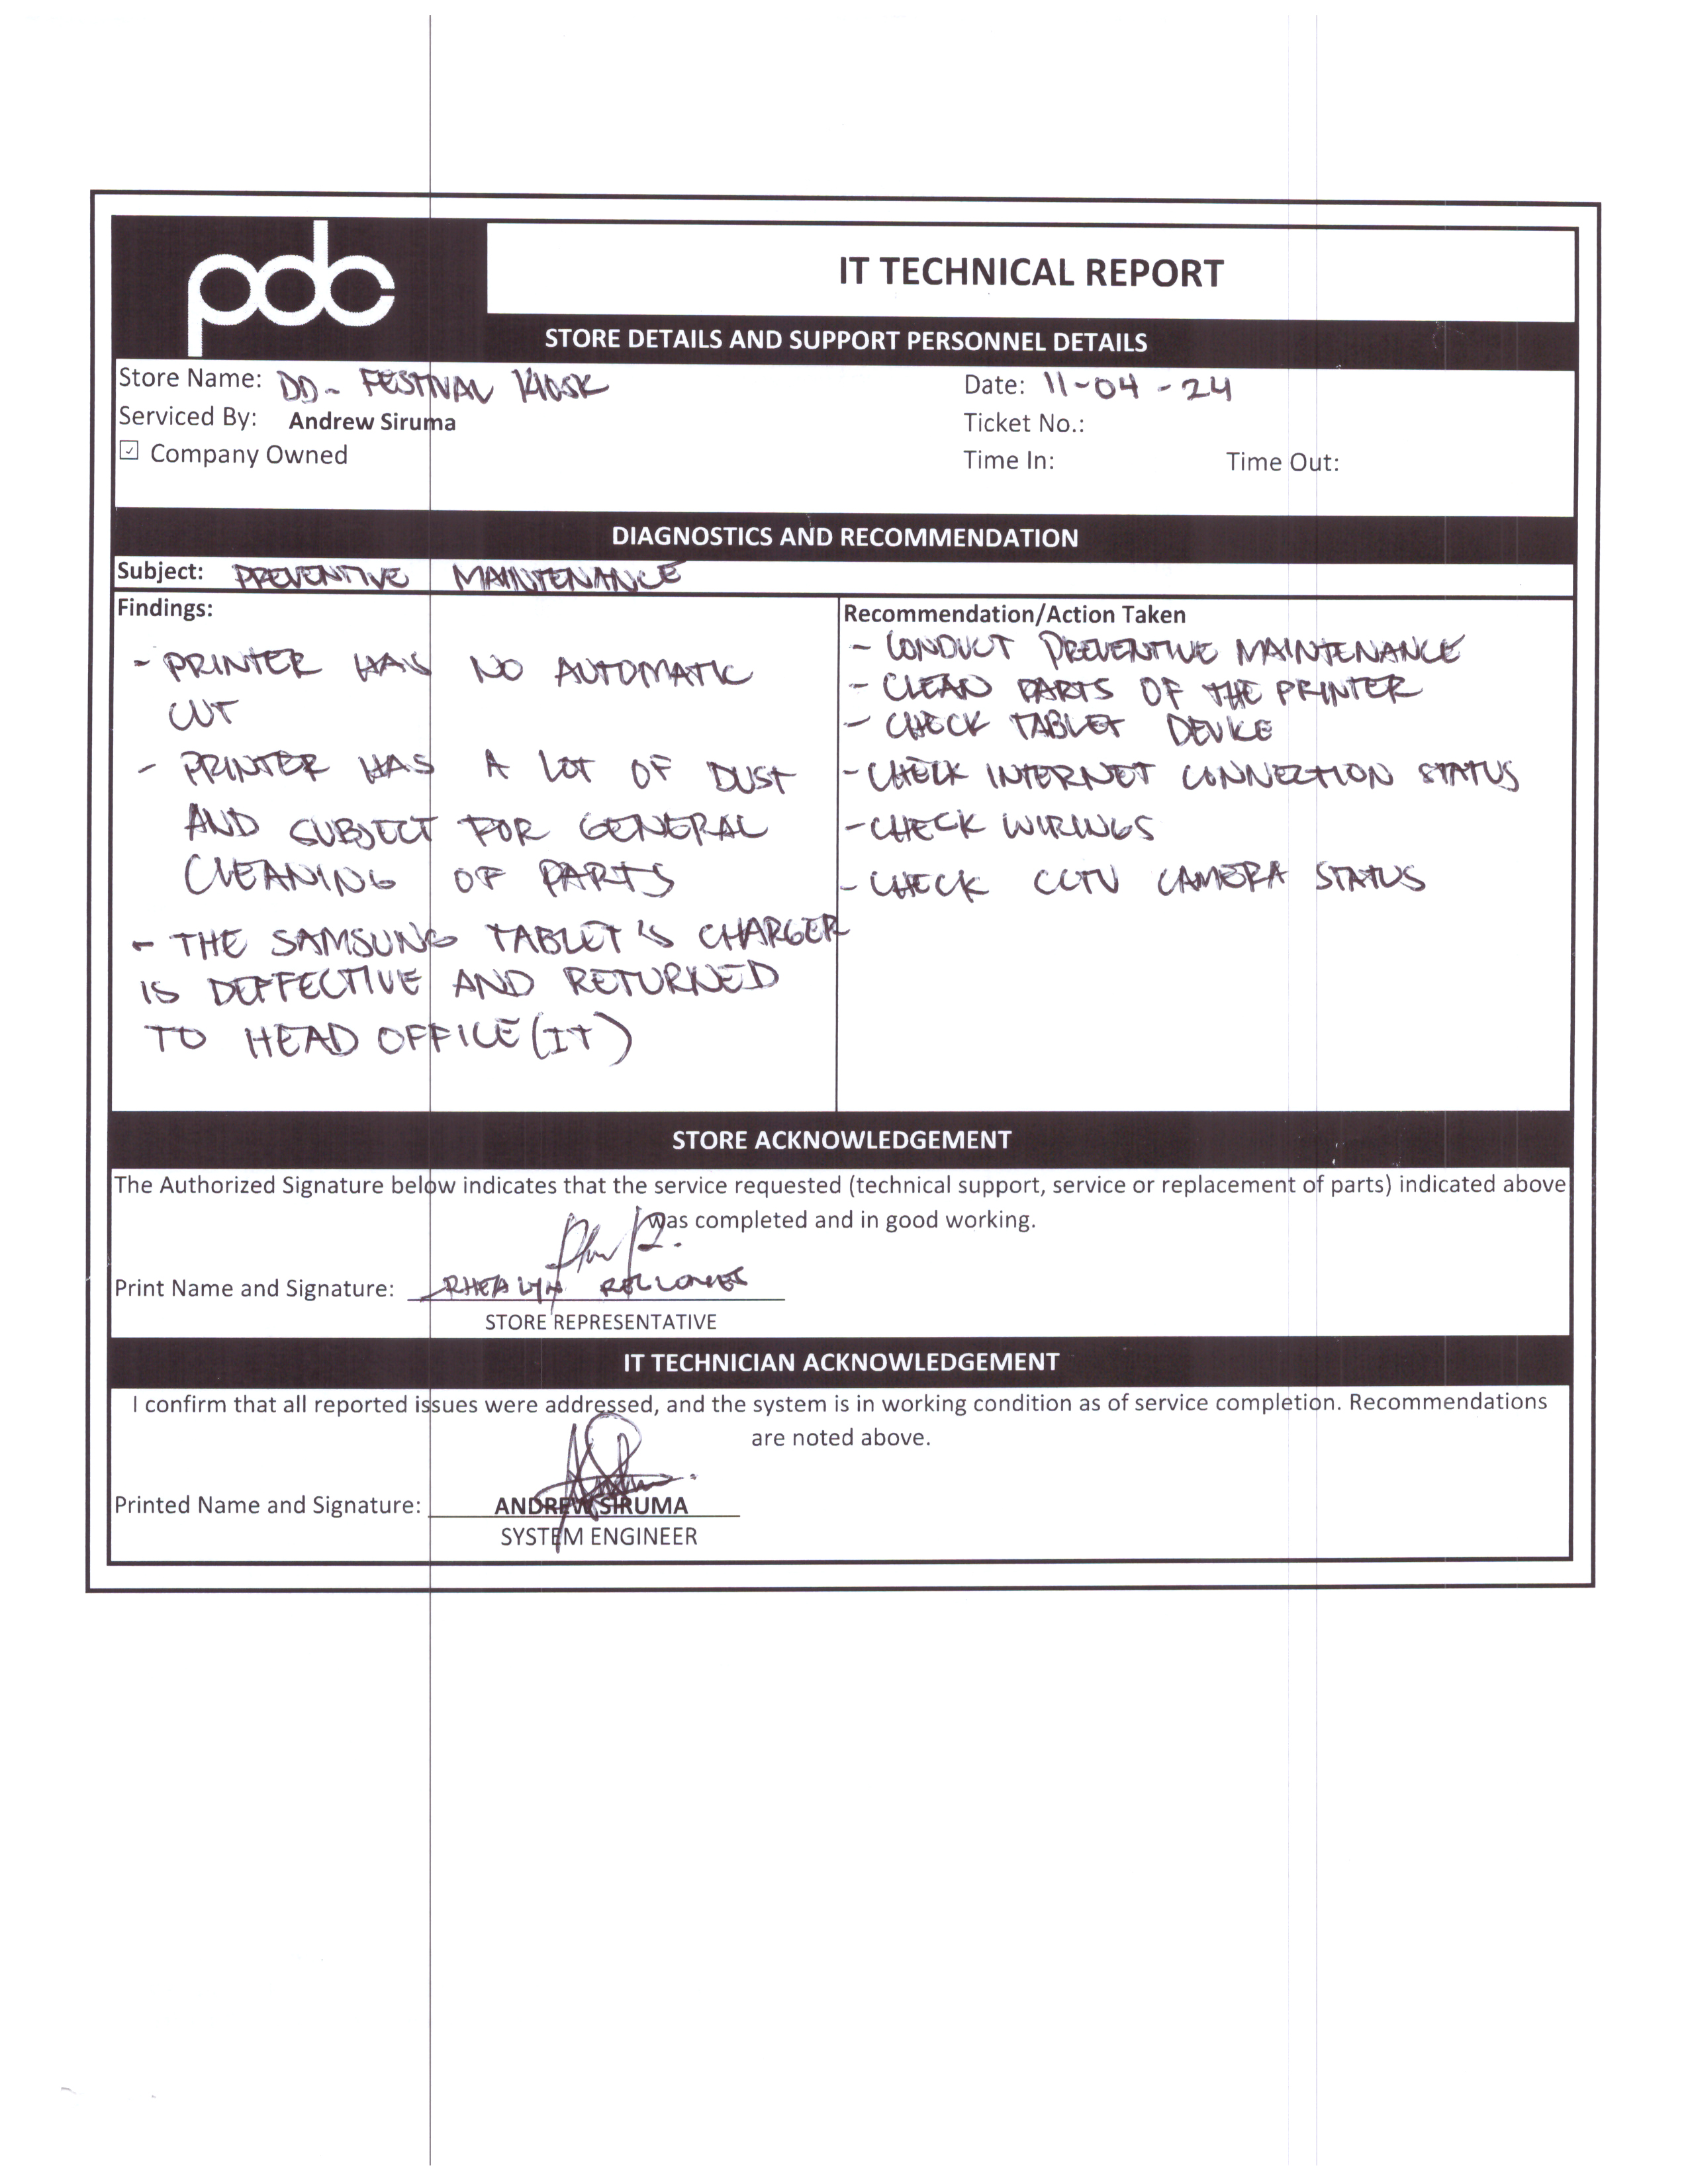 pdc
IT TECHNICAL REPORT
STORE DETAILS AND SUPPORT PERSONNEL DETAILS
Store Name: DD - FESTIVAL KIOSK Date: 11-04-24
Serviced By: Andrew Siruma Ticket No.:
Company Owned Time In: Time Out:
DIAGNOSTICS AND RECOMMENDATION
Subject: PREVENTIVE MAINTENANCE
Findings:
- PRINTER HAS NO AUTOMATIC
CUT
- PRINTER HAS A LOT OF DUST
AND SUBJECT FOR GENERAL
CLEANING OF PARTS
- THE SAMSUNG TABLET'S CHARGER
IS DEFFECTIVE AND RETURNED
TO HEAD OFFICE (IT)
Recommendation/Action Taken
- CONDUCT PREVENTIVE MAINTENANCE
- CLEAN PARTS OF THE PRINTER
- CHECK TABLET DEVICE
- CHECK INTERNET CONNECTION STATUS
- CHECK WIRINGS
- CHECK CCTV CAMERA STATUS
STORE ACKNOWLEDGEMENT
The Authorized Signature below indicates that the service requested (technical support, service or replacement of parts) indicated above
was completed and in good working.
Print Name and Signature: RHEALYN
STORE REPRESENTATIVE
IT TECHNICIAN ACKNOWLEDGEMENT
I confirm that all reported issues were addressed, and the system is in working condition as of service completion. Recommendations
are noted above.
Printed Name and Signature: ANDREW SIRUMA
SYSTEM ENGINEER